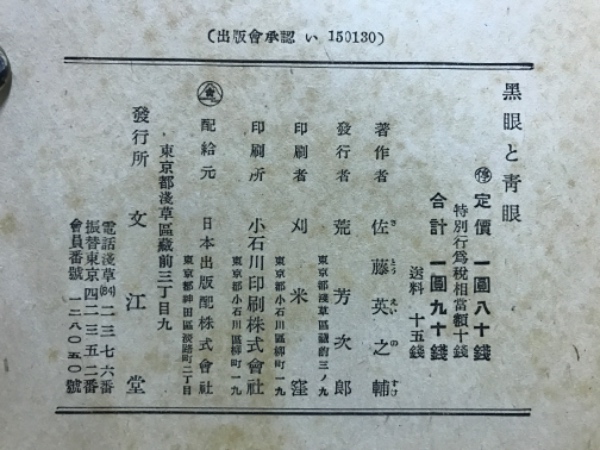 (出版會承認 い 150130)
黑眼と靑眼
㊡ 定價 一圓八十錢
特別行爲稅相當額十錢
合計 一圓九十錢
送料 十五錢
著作者 佐藤英之輔
さとうえいのすけ
發行者 荒芳次郎
東京都淺草區藏前三ノ九
印刷者 刈米窪
東京都小石川區柳町一九
印刷所 小石川印刷株式會社
東京都小石川區柳町一九
配給元 日本出版配株式會社
東京都神田區淡路町二丁目
東京都淺草區藏前三丁目九
發行所 文江堂
電話淺草(84)二三七六番
振替東京四二三五二番
會員番號 一二八〇五〇號